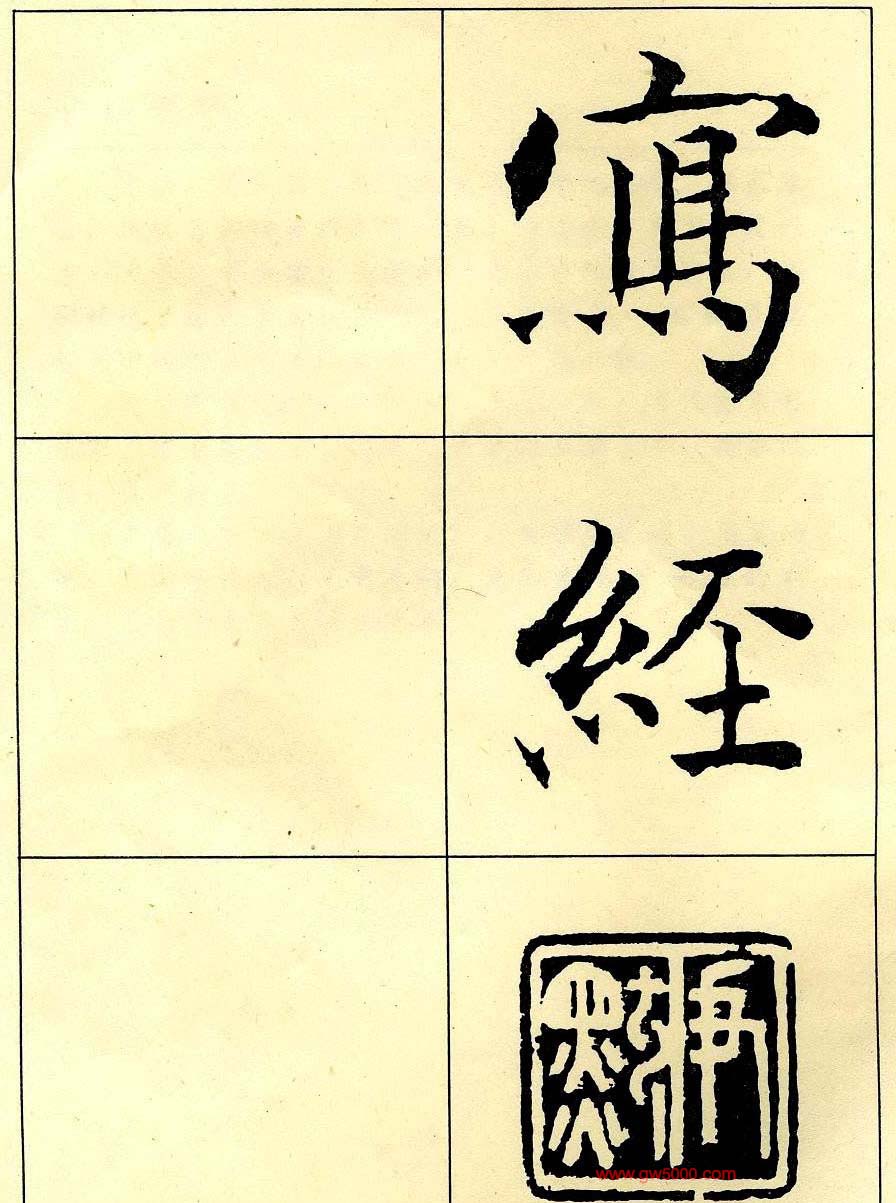 寫
経
www.gw5000.com